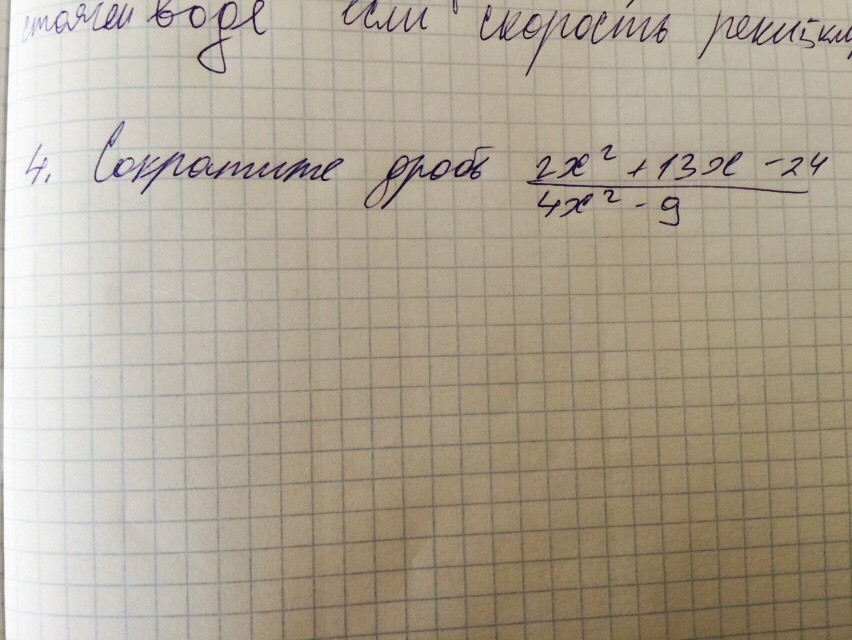 стоячей воде если скорость реки 5 км
4. Сократите дробь 2x² + 13x - 24
4x² - 9